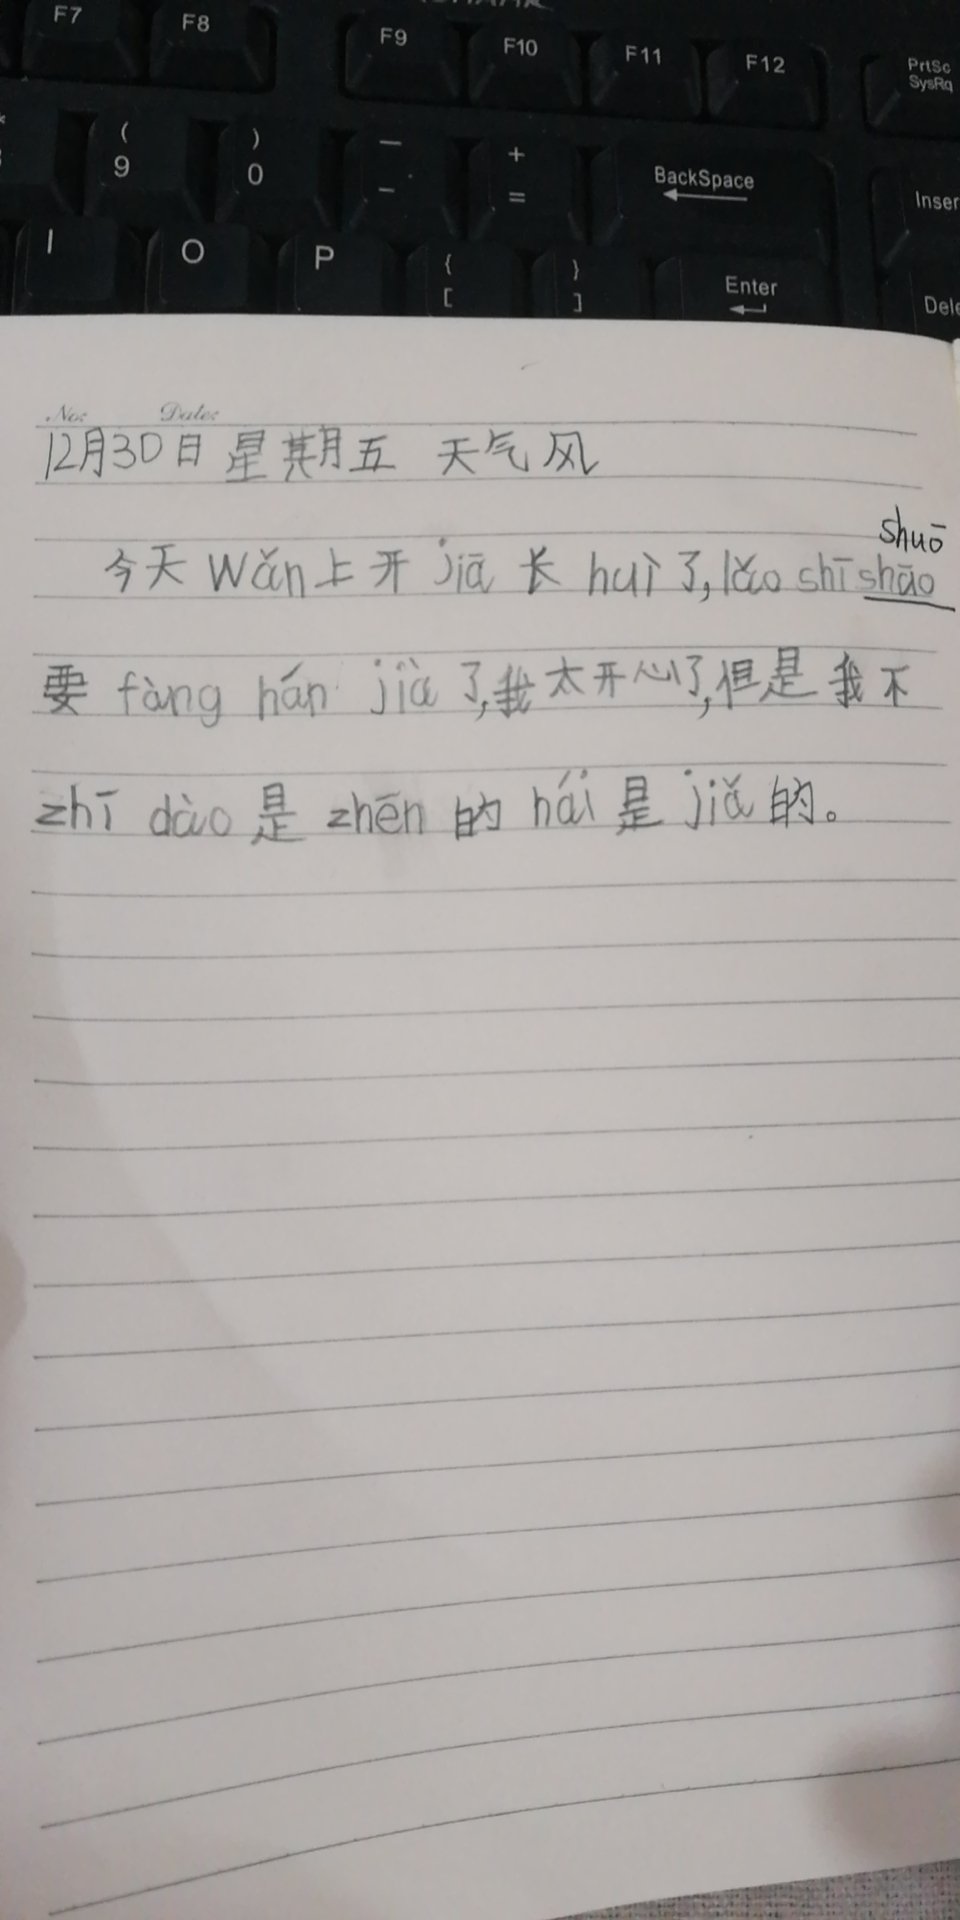 F7 F8 F9 F10 F11 F12 PrtSc
SysRq
( ) — +
9 0 - = BackSpace Inser
I O P { }
[ ] Enter Dele
No: Date:
12月30日 星期五 天气风
shuō
今天 wǎn上开 jiā 长 huì 了,lǎo shī shāo
要 fàng hán jià 了,我太开心了,但是我不
zhī dào 是 zhēn 的 hái 是 jiǎ 的。